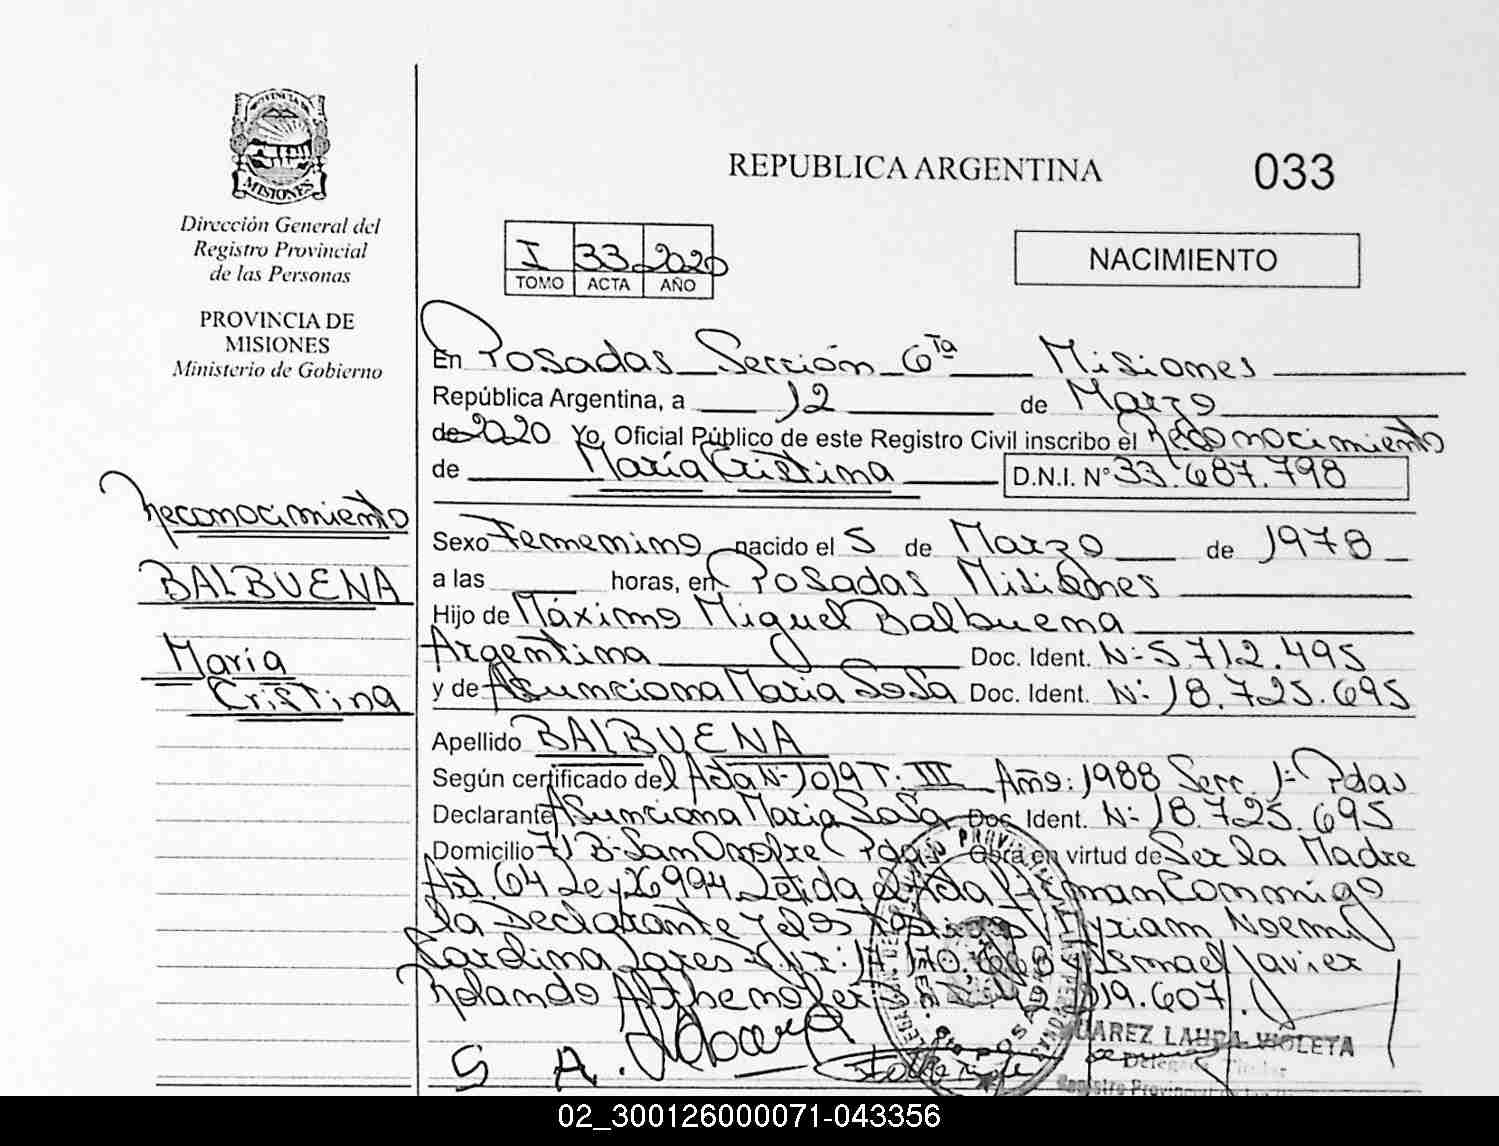 PROVINCIA DE
MISIONES
Dirección General del
Registro Provincial
de las Personas
PROVINCIA DE
MISIONES
Ministerio de Gobierno
REPUBLICA ARGENTINA
033
I 33 2020
TOMO ACTA AÑO
NACIMIENTO
En Posadas Sección 6ta Misiones
República Argentina, a 12 de Marzo
de 2020 Yo, Oficial Público de este Registro Civil inscribo el Reconocimiento
de María Cristina D.N.I. Nº 33.687.798
Reconocimiento
BALBUENA
María
Cristina
Sexo Femenino nacido el 5 de Marzo de 1978
a las horas, en Posadas Misiones
Hijo de Máximo Miguel Balbuena
Argentina Doc. Ident. Nº 5.712.495
y de Asunciona Maria Sosa Doc. Ident. Nº 18.725.695
Apellido BALBUENA
Según certificado del Acta Nº 1019 T: III Año: 1988 Secc. 1º Pdas
Declarante Asunciona Maria Sosa Doc. Ident. Nº 18.725.695
Domicilio San Onofre Pdas Obra en virtud de Ser la Madre
Art. 64 Ley 26994 Leida el Acta Firman Conmigo
la Declarante y los Myriam Noemi
y Ismael Javier
Rolando 019.607
S A.
JUAREZ LAURA VIOLETA
Delegada Titular
Registro Provincial de las
02_300126000071-043356